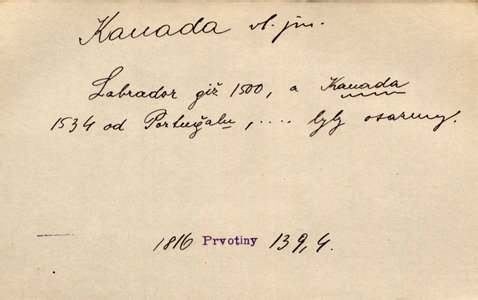 Kanada vl. jm.
Labrador giž 1500, a Kanada
1534 od Portugalu, .... byly osazeny.
1816 Prvotiny 139,4.